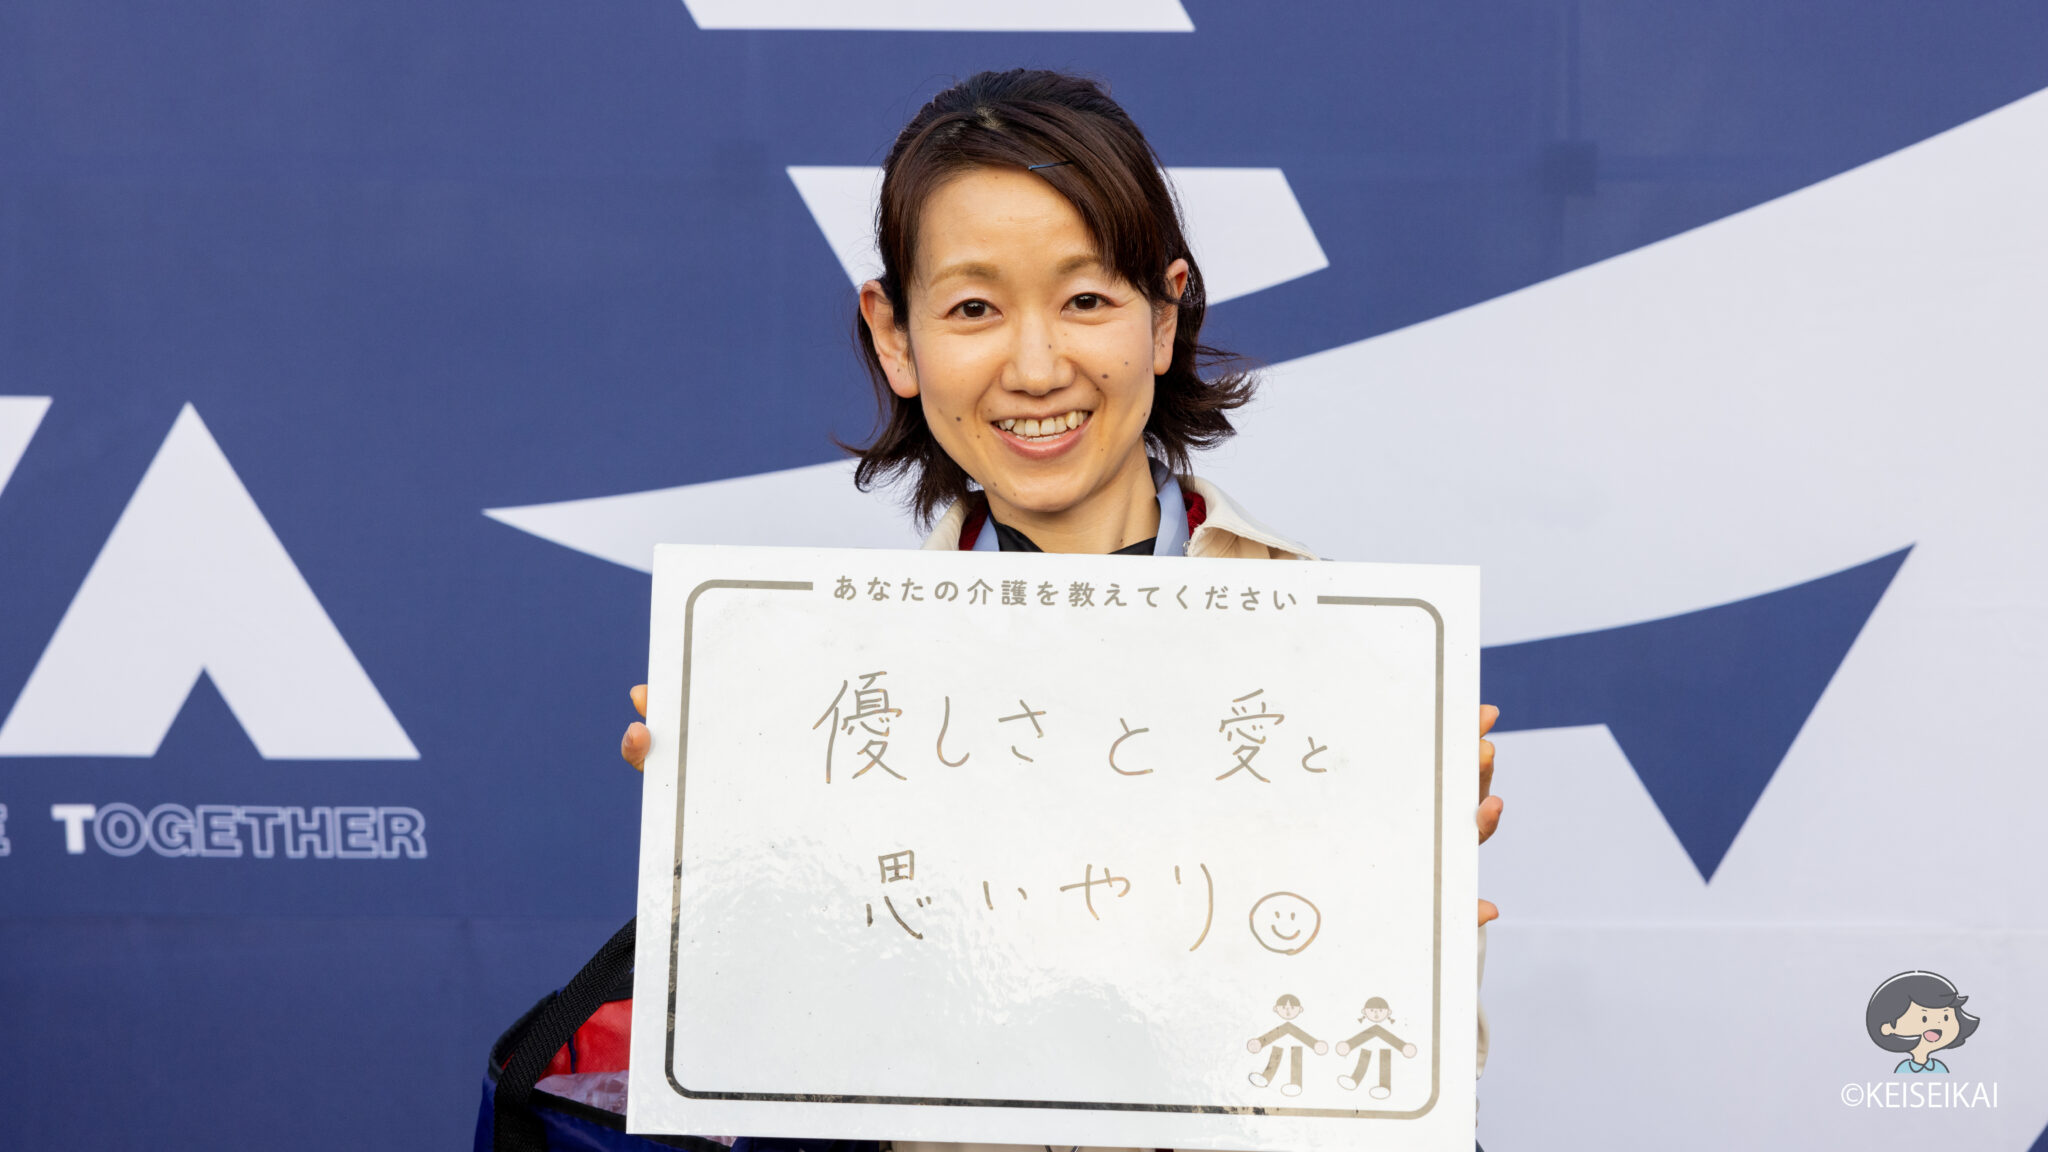 あなたの介護を教えてください
優しさと愛と
思いやり
TOGETHER
©KEISEIKAI